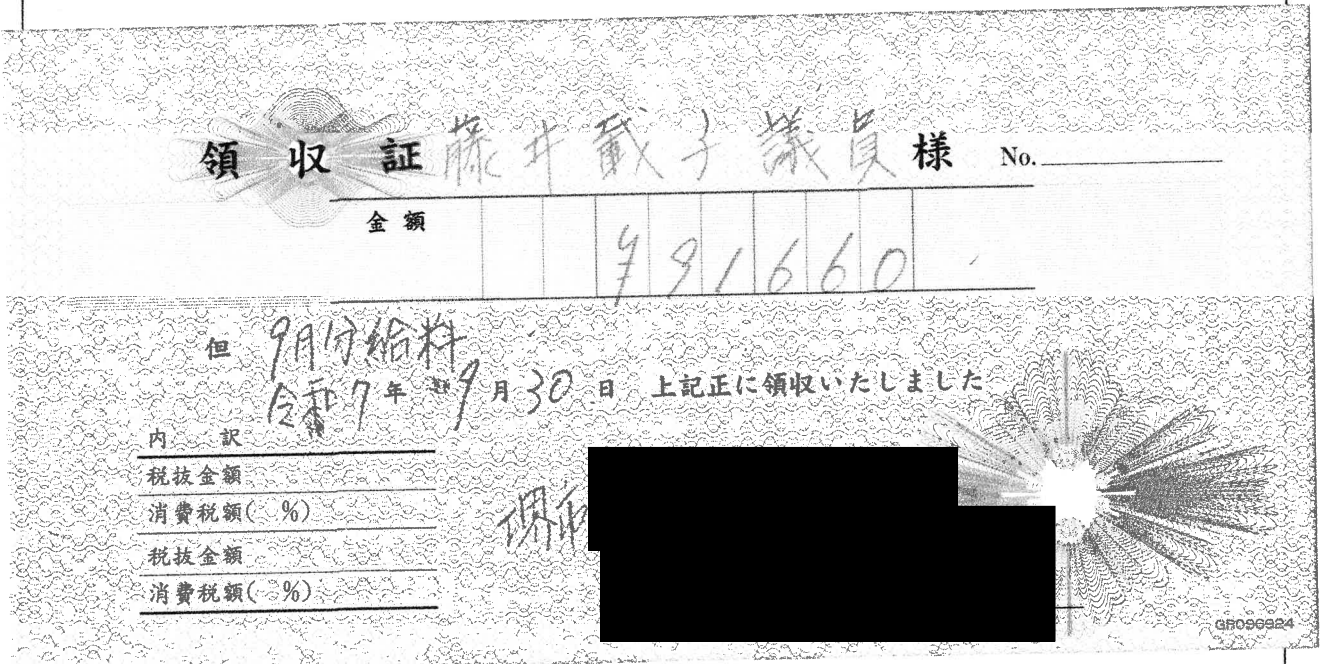 領収証 藤井載子議員 様 No.
金額 ¥91660
但 9月分給料
令和7年 9月30日 上記正に領収いたしました
内 訳
税抜金額
消費税額( %)
税抜金額
消費税額( %)
堺市
GR096924